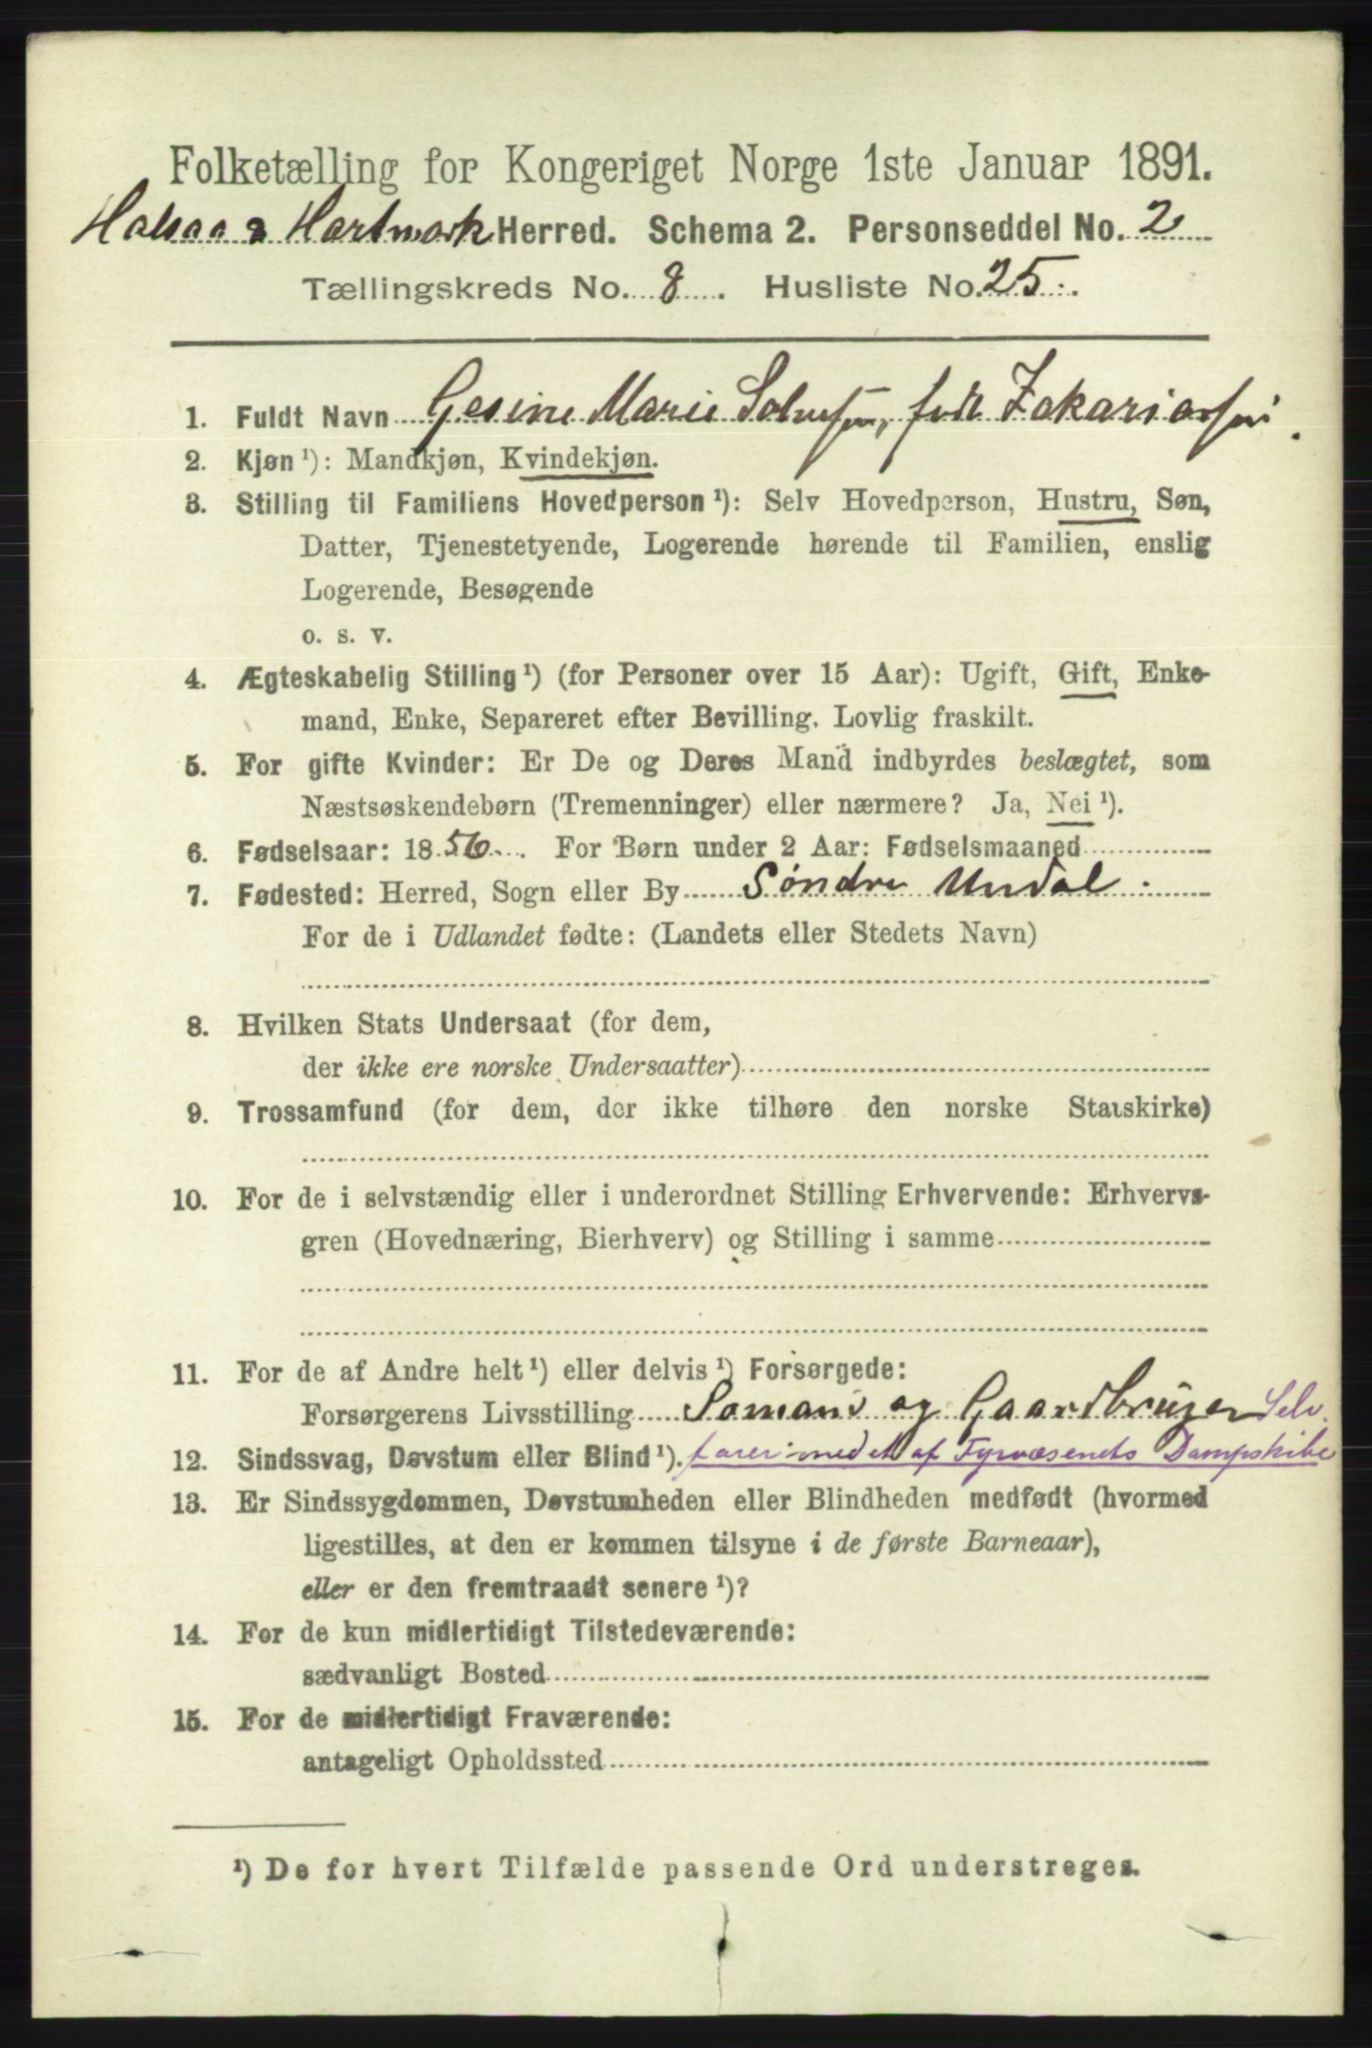 Folketælling for Kongeriget Norge 1ste Januar 1891.
Halsaa & Hartmark Herred. Schema 2. Personseddel No. 2
Tællingskreds No. 8. Husliste No. 25.
1. Fuldt Navn Gesine Marie Salvesen, født Zakariassen.
2. Kjøn ¹): Mandkjøn, Kvindekjøn.
3. Stilling til Familiens Hovedperson ¹): Selv Hovedperson, Hustru, Søn,
Datter, Tjenestetyende, Logerende hørende til Familien, enslig
Logerende, Besøgende
o. s. v.
4. Ægteskabelig Stilling ¹) (for Personer over 15 Aar): Ugift, Gift, Enke-
mand, Enke, Separeret efter Bevilling. Lovlig fraskilt.
5. For gifte Kvinder: Er De og Deres Mand indbyrdes beslægtet, som
Næstsøskendebørn (Tremenninger) eller nærmere? Ja, Nei ¹).
6. Fødselsaar: 1856. For Børn under 2 Aar: Fødselsmaaned
7. Fødested: Herred, Sogn eller By Søndre Undal.
For de i Udlandet fødte: (Landets eller Stedets Navn)
8. Hvilken Stats Undersaat (for dem,
der ikke ere norske Undersaatter)
9. Trossamfund (for dem, der ikke tilhøre den norske Statskirke)
10. For de i selvstændig eller i underordnet Stilling Erhvervende: Erhvervs-
gren (Hovednæring, Bierhverv) og Stilling i samme
11. For de af Andre helt ¹) eller delvis ¹) Forsørgede:
Forsørgerens Livsstilling Sømand og Gaardbruger Selv.
12. Sindssvag, Døvstum eller Blind ¹). farer med et af Fyrvæsenets Dampskibe
13. Er Sindssygdommen, Døvstumheden eller Blindheden medfødt (hvormed
ligestilles, at den er kommen tilsyne i de første Barneaar),
eller er den fremtraadt senere ¹)?
14. For de kun midlertidigt Tilstedeværende:
sædvanligt Bosted
15. For de midlertidigt Fraværende:
antageligt Opholdssted
¹) De for hvert Tilfælde passende Ord understreges.